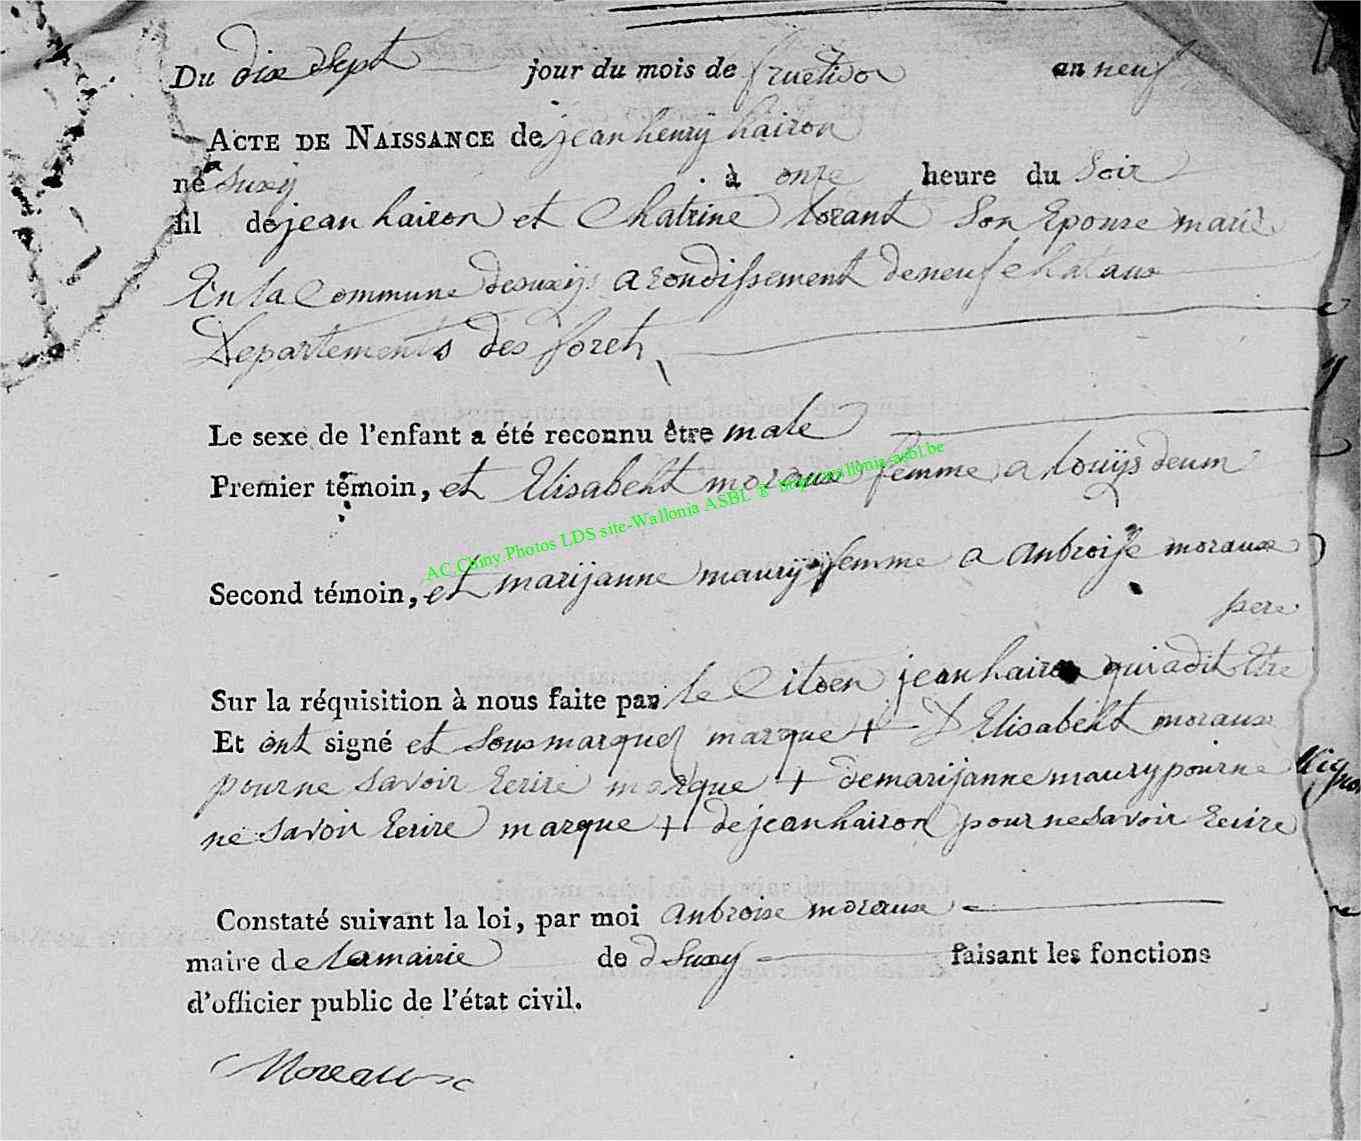 Du dix Sept jour du mois de fructidor an neuf
ACTE DE NAISSANCE de jean henrÿ hairon
né Suxÿ à onze heure du Soir
fil de jean hairon et Chatrine lorant Son Epouse marié
En la Commune desuxÿ arondissement deneufchataux
Departements des foret
Le sexe de l'enfant a été reconnu être male
Premier témoin, et Elisabeht moraux femme a louÿs deum
AC Chiny Photos LDS site-Wallonia ASBL ® http:wallonia-asbl.be
Second témoin, et marijanne maurÿ femme a anbroise moraux
pere
Sur la réquisition à nous faite par le Citoen jean hairon qui adit Etre
Et ont signé et Sousmarquez marque + D Elisabeht moraux
pour ne Savoir Ecrire marque + demarijanne maury pour ne
ne Savoir Ecrire marque + de jean hairon pour ne Savoir Ecrire
Constaté suivant la loi, par moi anbroise moraux
maire de lamairie de dSuxy faisant les fonctions
d'officier public de l'état civil.
Moreaux